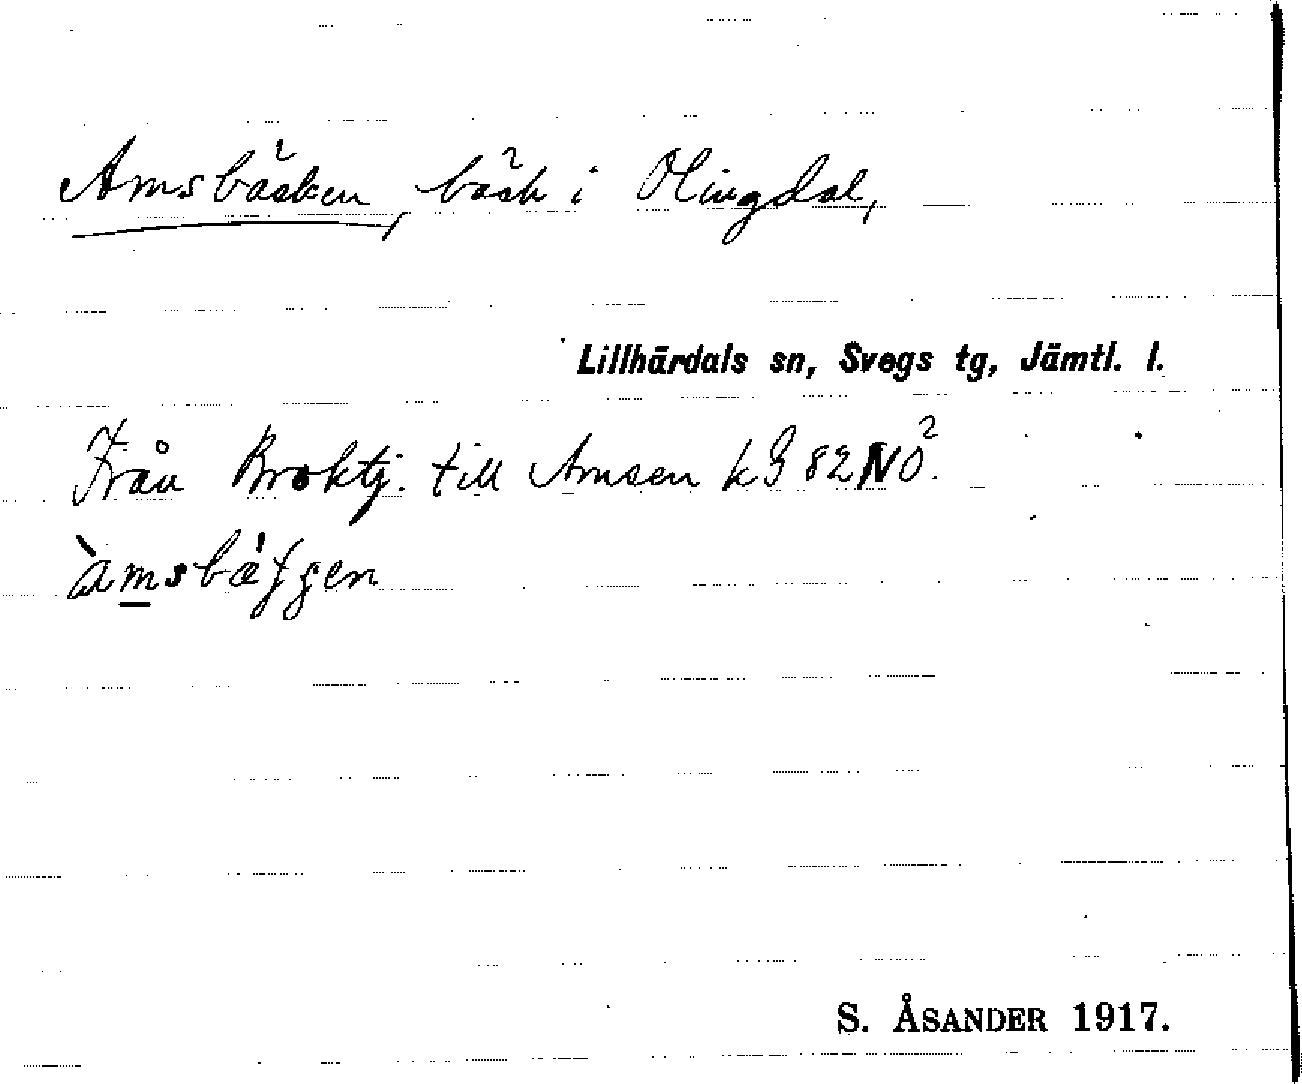 Amsbäcken, bäck i Olingdal,
Lillhärdals sn, Svegs tg, Jämtl. l.
Från Broktj. till Amsen kg 82 NO.
S. ÅSANDER 1917.